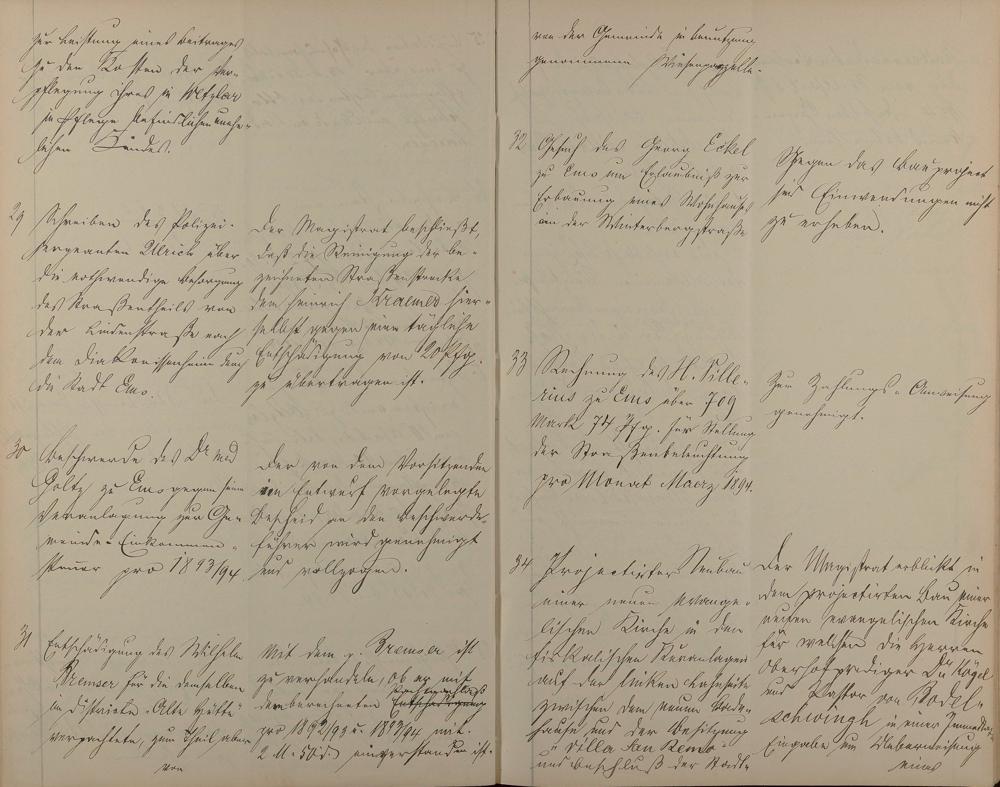 zur Leistung eines Beitrages
zu den Kosten der Ver-
pflegung ihres in Wetzlar
in Pflege befindlichen unehe-
lichen Kindes.
29 Schreiben des Polizei-
sergeanten Ulrich über
die nothwendige Besorgung
des Straßentheils von
der Lindenstraße nach
dem Diakonissenheim durch
die Stadt Ems.
Der Magistrat beschließt,
daß die Reinigung der be-
zeichneten Straßenstrecke
dem Heinrich Kraemer hier-
selbst gegen eine tägliche
Entschädigung von 20 Pfg.
zu übertragen ist.
30 Beschwerde des Dr med
Goltz zu Ems gegen seine
Veranlagung zur Ge-
meinde-Einkommen-
steuer pro 1893/94
Der von dem Vorsitzenden
im Entwurf vorgelegte
Bescheid an den Beschwerde-
führer wird genehmigt
und vollzogen.
31 Entschädigung des Wilhelm
Bremser für die demselben
im Distrikte "Alte Hütte"
verpachtete, zum Theil aber
von
Mit dem p. Bremser ist
zu verhandeln, ob er mit
dem berechneten Entschädigung
pro 1892/93 u. 1893/94 mit
2 M. 50 d. einverstanden ist.
von der Gemeinde in Benutzung
genommene Wiesenparzelle.
32 Gesuch des Georg Eckel
zu Ems um Erlaubniß zur
Erbauung eines Wohnhauses
an der Winterbergstraße
Gegen das Bauproject
sind Einwendungen nicht
zu erheben.
33 Rechnung des H. Pille-
rius zu Ems über 709
Mark 74 Pfg. für Stellung
der Straßenbeleuchtung
pro Monat Maerz 1894.
Zur Zahlungs-Anweisung
genehmigt.
34 Projectirter Neubau
einer neuen evange-
lischen Kirche in den
fiskalischen Kuranlagen
auf der linken Lahnseite
zwischen dem neuen Bade-
hause und der Besitzung
"Villa San Remo"
und Beschluß der Stadt-
Der Magistrat erblickt in
dem projectirten Bau einer
neuen evangelischen Kirche
für welchen die Herren
Oberhofprediger Dr Kögel
und Pastor von Bodel-
schwingh in einer Immediat-
Eingabe um Ueberweisung
eines